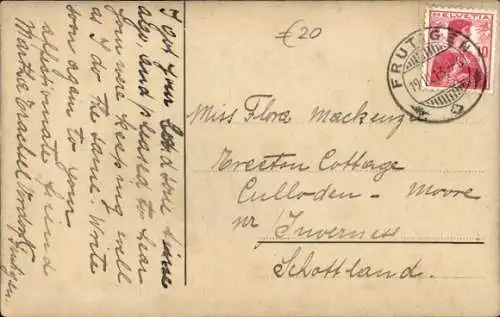 I got your card some time
ago, and pleased to hear
you were keeping well
as I do the same. Write
soon again to your
affectionate friend
Martha
Frutigen.
€20
HELVETIA
10
FRUTIGEN
Miss Flora Mackenzie
Erecton Cottage
Culloden - Moore
nr Inverness
Schottland.